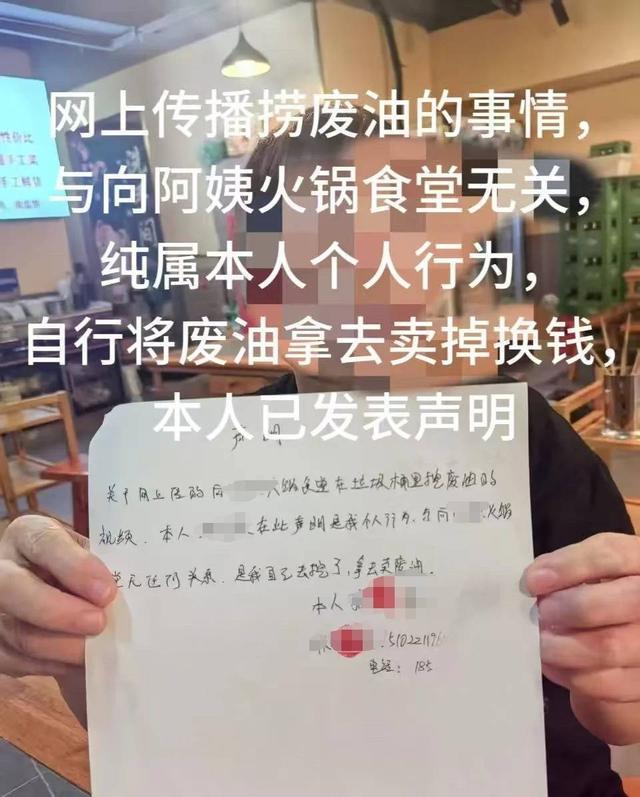 性价比
手工浆
手工鲜货
网上传播捞废油的事情，
与向阿姨火锅食堂无关，
纯属本人个人行为，
自行将废油拿去卖掉换钱，
本人已发表声明
声明
关于网上传的向 火锅食堂在垃圾桶里捞废油的
视频．本人 在此声明是我个人行为．与向 火锅
堂无任何关系．是我自己去捞了，拿去卖废油．
本人
5102211196
电话：185